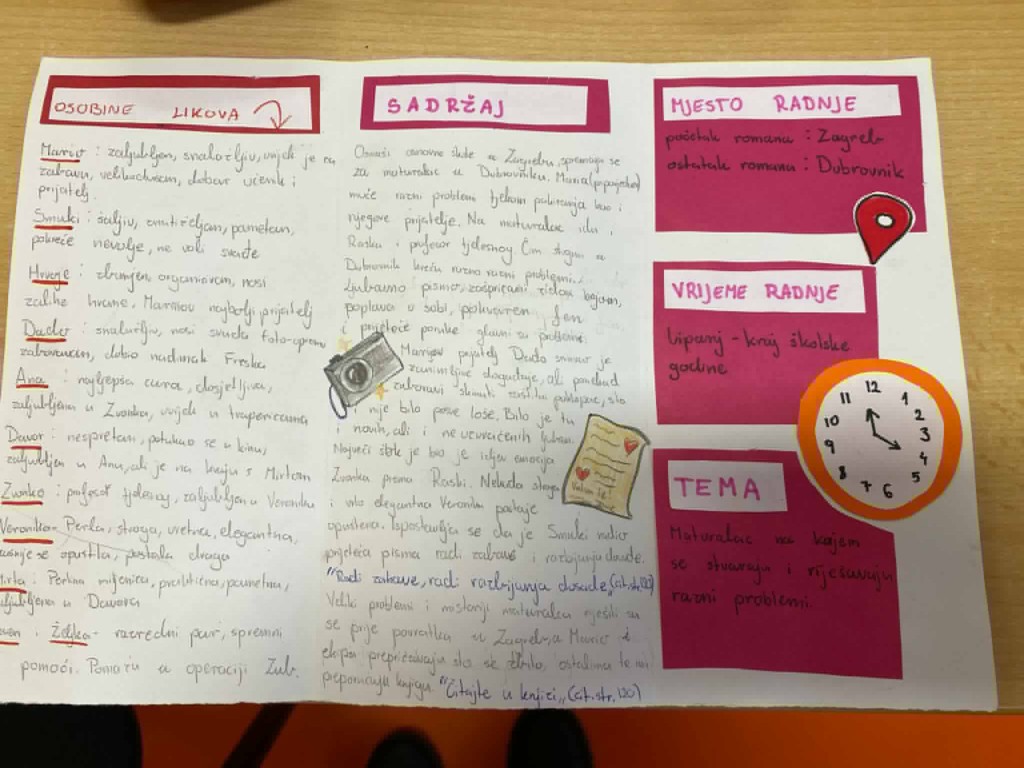 OSOBINE LIKOVA
Mario : zaljubljen, snalažljiv, uvijek je za
zabavu, velikodušan, dobar učenik i
prijatelj.
Smuki : šaljiv, znatiželjan, pametan,
pokreće nevolje, ne voli svađe
Hrvoje : zbunjen, organiziran, nosi
zalihe hrane. Mariov najbolji prijatelj
Dado : snalažljiv, nosi svuda foto-opremu
zaboravan, dobio nadimak Freska
Ana : najljepša cura, dosjetljiva,
zaljubljena u Zvonka, uvijek u trapericama
Davor : nespretan, potukao se u kinu,
zaljubljen u Anu, ali je na kraju s Mirtom
Zvonko : profesor tjelesnog, zaljubljen u Veroniku
Veronika- Perla, stroga, uredna, elegantna,
se opustila, postala draga
Mirta : Perlina mljenica, praktična, pametna,
zaljubljena u Davora
i Željka- razredni par, spremni
pomoći. Pomažu u operaciji Zub.
SADRŽAJ
Osmaši osnovne škole u Zagrebu, spremaju se
za maturalac u Dubrovniku. Maria (pripovjedač)
muče razni problemi tijekom pakiranja kao i
njegove prijatelje. Na maturalac idu i
Raska i profesor tjelesnog. Čim stignu u
Dubrovnik kreću razno razni problemi.
Ljubavno pismo, zašpricani zidovi bojom,
poplava u sobi, pokvaren fen
i prijeteće poruke glavni su problemi.
Mariov prijatelj Dado snimao je
zanimljive događaje, ali ponekad
zaboravi skinuti zaštitni poklopac, što
i nije bilo posve loše. Bilo je tu
i novih, ali i neuzvraćenih ljubavi.
Najveći štrik je bio je izljev emocija
Zvonka prema Raski. Nekada stroga
i vrlo elegantna Veronika postaje
opuštena. Ispostavlja se da je Smuki radio
prijeteća pisma radi zabave i razbijanja dosade.
"Radi zabave, radi razbijanja dosade„ (cit.str.
Veliki problemi i misteriji maturalca riješili su
se prije povratka u Zagreb, a Mario i
ekipa prepričavaju što se zbilo ostalima te im
preporučuju knjigu. "Čitajte u knjizi„ (cit.str.120)
Volim te
MJESTO RADNJE
početak romana : Zagreb
ostatak romana : Dubrovnik
VRIJEME RADNJE
lipanj - kraj školske
godine
12
1
2
3
4
5
6
7
8
9
10
11
TEMA
Maturalac na kojem
se stvaraju i riješavaju
razni problemi.